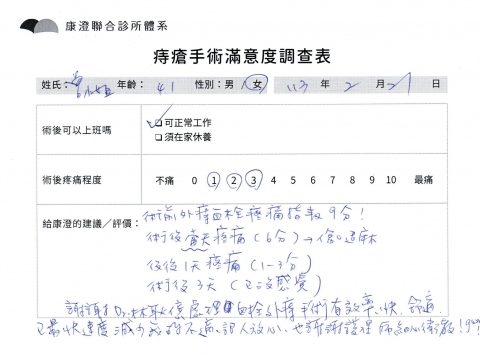 康澄聯合診所體系
痔瘡手術滿意度調查表
姓氏：曾小姐 年齡：41 性別：男 女 113 年 2 月 27 日
術後可以上班嗎 ☑可正常工作
□須在家休養
術後疼痛程度 不痛 0 1 2 3 4 5 6 7 8 9 10 最痛
給康澄的建議／評價：
術前外痔血栓疼痛指數9分！
術後當天疼痛(6分)→
後1天疼痛(1-3分)
術後3天(已沒感覺)
謝謝Dr.林 處理血栓外痔手術有效率、快
最快速度減少 的不適、讓人放心、也謝謝護理師細心衛教！